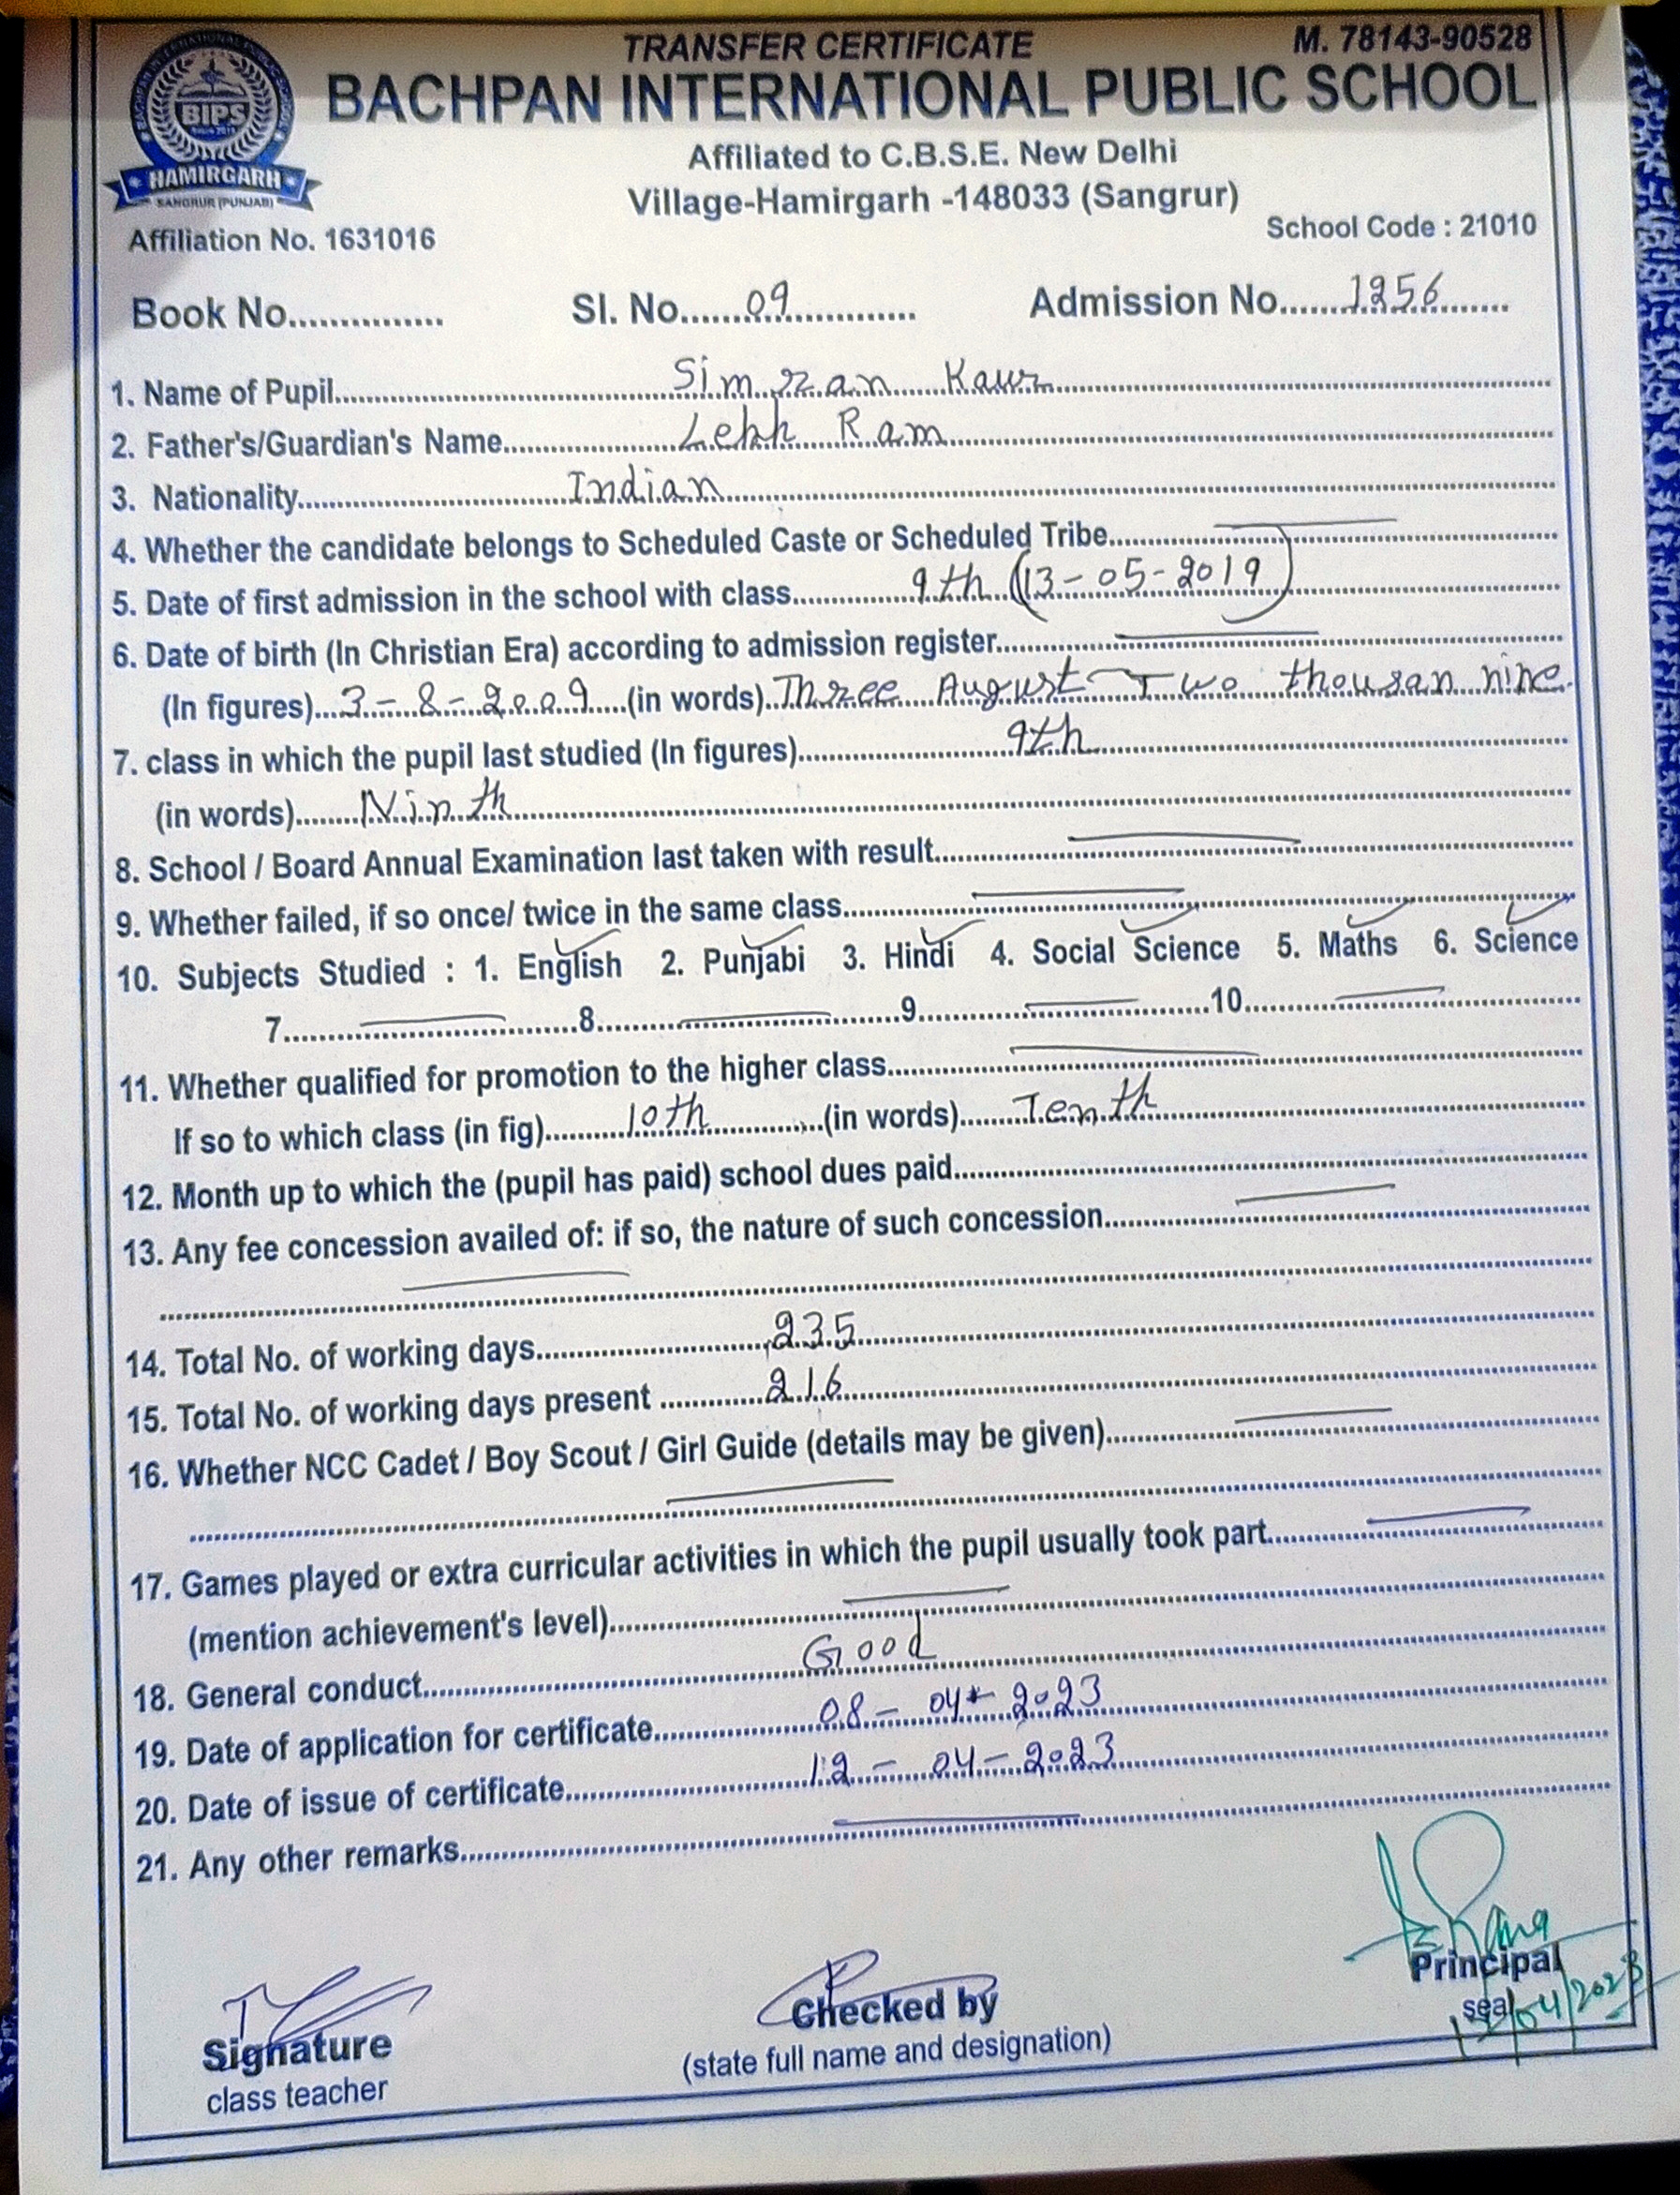 TRANSFER CERTIFICATE M. 78143-90528
BACHPAN INTERNATIONAL PUBLIC SCHOOL
BIPS
HAMIRGARH
SANGRUR (PUNJAB)
Affiliated to C.B.S.E. New Delhi
Village-Hamirgarh -148033 (Sangrur)
Affiliation No. 1631016 School Code : 21010
Book No............... Sl. No.......09.............. Admission No.......1256.......
1. Name of Pupil.......Simran Kaur.......
2. Father's/Guardian's Name.......Lekh Ram.......
3. Nationality.......Indian.......
4. Whether the candidate belongs to Scheduled Caste or Scheduled Tribe.......
5. Date of first admission in the school with class.......9th (13-05-2019).......
6. Date of birth (In Christian Era) according to admission register.......
(In figures)...3-8-2009....(in words)..Three August Two thousan nine.
7. class in which the pupil last studied (In figures).......9th.......
(in words).......Ninth.......
8. School / Board Annual Examination last taken with result.......
9. Whether failed, if so once/ twice in the same class.......
10. Subjects Studied : 1. English 2. Punjabi 3. Hindi 4. Social Science 5. Maths 6. Science
7..............8..............9..............10..............
11. Whether qualified for promotion to the higher class.......
If so to which class (in fig).......10th.......(in words).......Tenth.......
12. Month up to which the (pupil has paid) school dues paid.......
13. Any fee concession availed of: if so, the nature of such concession.......
14. Total No. of working days.......235.......
15. Total No. of working days present .......216.......
16. Whether NCC Cadet / Boy Scout / Girl Guide (details may be given).......
17. Games played or extra curricular activities in which the pupil usually took part.......
(mention achievement's level).......
18. General conduct.......Good.......
19. Date of application for certificate.......08-04-2023.......
20. Date of issue of certificate.......12-04-2023.......
21. Any other remarks.......
Signature Checked by Principal
class teacher (state full name and designation) seal
12/04/2023